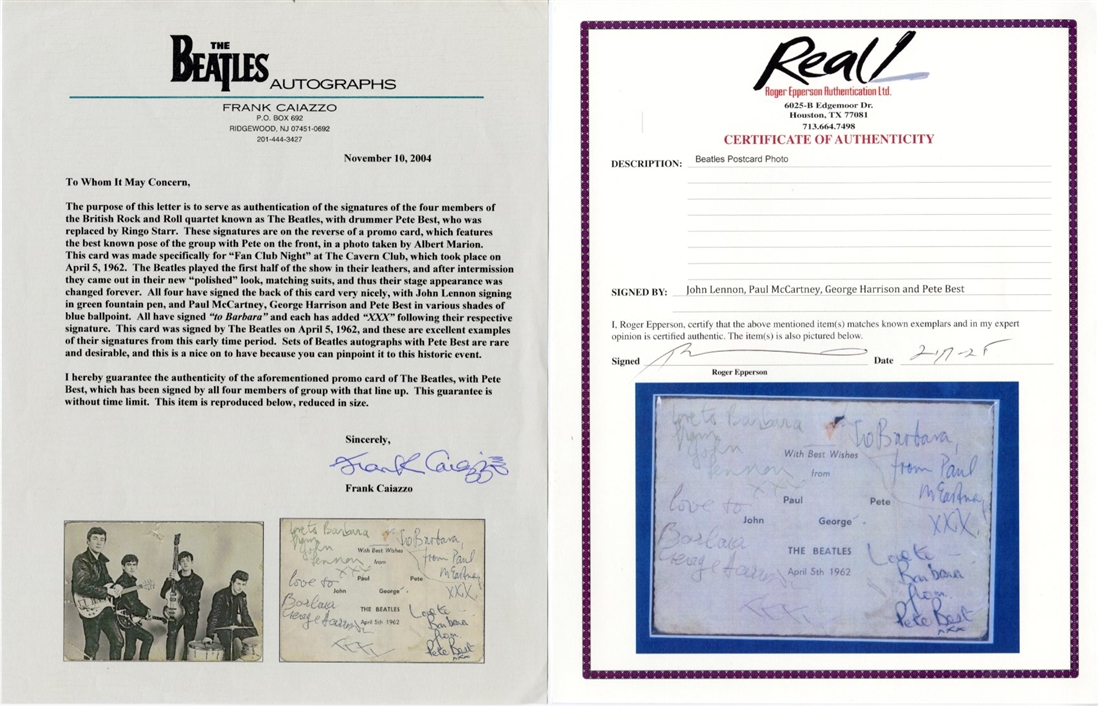 THE
BEATLES AUTOGRAPHS
FRANK CAIAZZO
P.O. BOX 692
RIDGEWOOD, NJ 07451-0692
201-444-3427
November 10, 2004
To Whom It May Concern,
The purpose of this letter is to serve as authentication of the signatures of the four members of
the British Rock and Roll quartet known as The Beatles, with drummer Pete Best, who was
replaced by Ringo Starr. These signatures are on the reverse of a promo card, which features
the best known pose of the group with Pete on the front, in a photo taken by Albert Marion.
This card was made specifically for "Fan Club Night" at The Cavern Club, which took place on
April 5, 1962. The Beatles played the first half of the show in their leathers, and after intermission
they came out in their new "polished" look, matching suits, and thus their stage appearance was
changed forever. All four have signed the back of this card very nicely, with John Lennon signing
in green fountain pen, and Paul McCartney, George Harrison and Pete Best in various shades of
blue ballpoint. All have signed "to Barbara" and each has added "XXX" following their respective
signature. This card was signed by The Beatles on April 5, 1962, and these are excellent examples
of their signatures from this early time period. Sets of Beatles autographs with Pete Best are rare
and desirable, and this is a nice on to have because you can pinpoint it to this historic event.
I hereby guarantee the authenticity of the aforementioned promo card of The Beatles, with Pete
Best, which has been signed by all four members of group with that line up. This guarantee is
without time limit. This item is reproduced below, reduced in size.
Sincerely,
Frank Caiazzo
Frank Caiazzo
love to Barbara
from
John
Lennon
XXX
to Barbara,
from Paul
McCartney
XXX
With Best Wishes
from
Paul Pete
John George
THE BEATLES
April 5th 1962
love to
Barbara
George Harrison
XXX
Love to
Barbara
from
Pete Best
xxx
Real!
Roger Epperson Authentication Ltd.
6025-B Edgemoor Dr.
Houston, TX 77081
713.664.7498
CERTIFICATE OF AUTHENTICITY
DESCRIPTION: Beatles Postcard Photo
SIGNED BY: John Lennon, Paul McCartney, George Harrison and Pete Best
I, Roger Epperson, certify that the above mentioned item(s) matches known exemplars and in my expert
opinion is certified authentic. The item(s) is also pictured below.
Signed Date
Roger Epperson
love to Barbara
from
John
Lennon
XXX
to Barbara,
from Paul
McCartney
XXX
With Best Wishes
from
Paul Pete
John George
THE BEATLES
April 5th 1962
love to
Barbara
George Harrison
XXX
Love to
Barbara
from
Pete Best
xxx